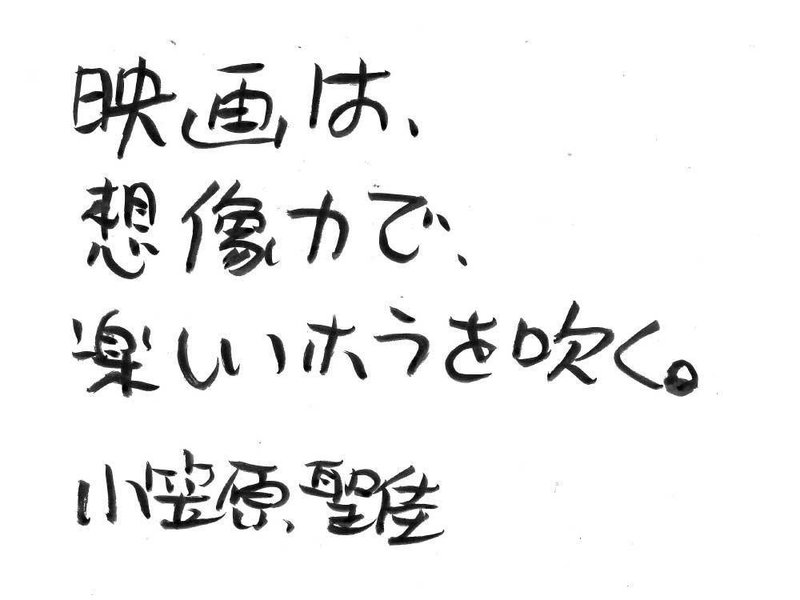 映画は、
想像力で、
楽しいホラを吹く。
小笠原聖佳